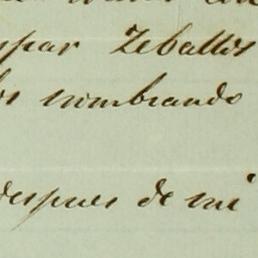 spar Zeballos
los nombrando
despues de mi